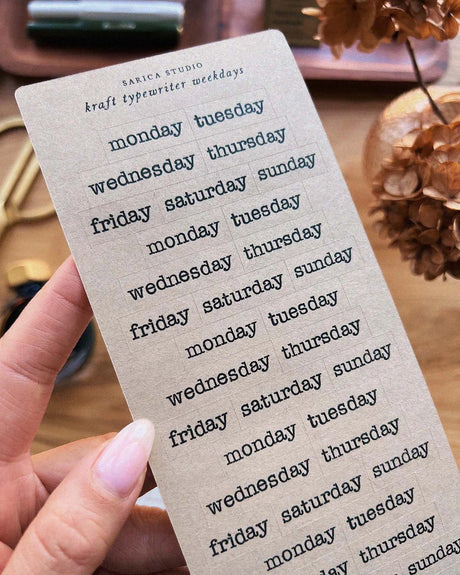 SARICA STUDIO
kraft typewriter weekdays
monday tuesday
wednesday thursday
friday saturday sunday
monday tuesday
wednesday thursday
friday saturday sunday
monday tuesday
wednesday thursday
friday saturday sunday
monday tuesday
wednesday thursday
friday saturday sunday
monday tuesday
thursday
sunday